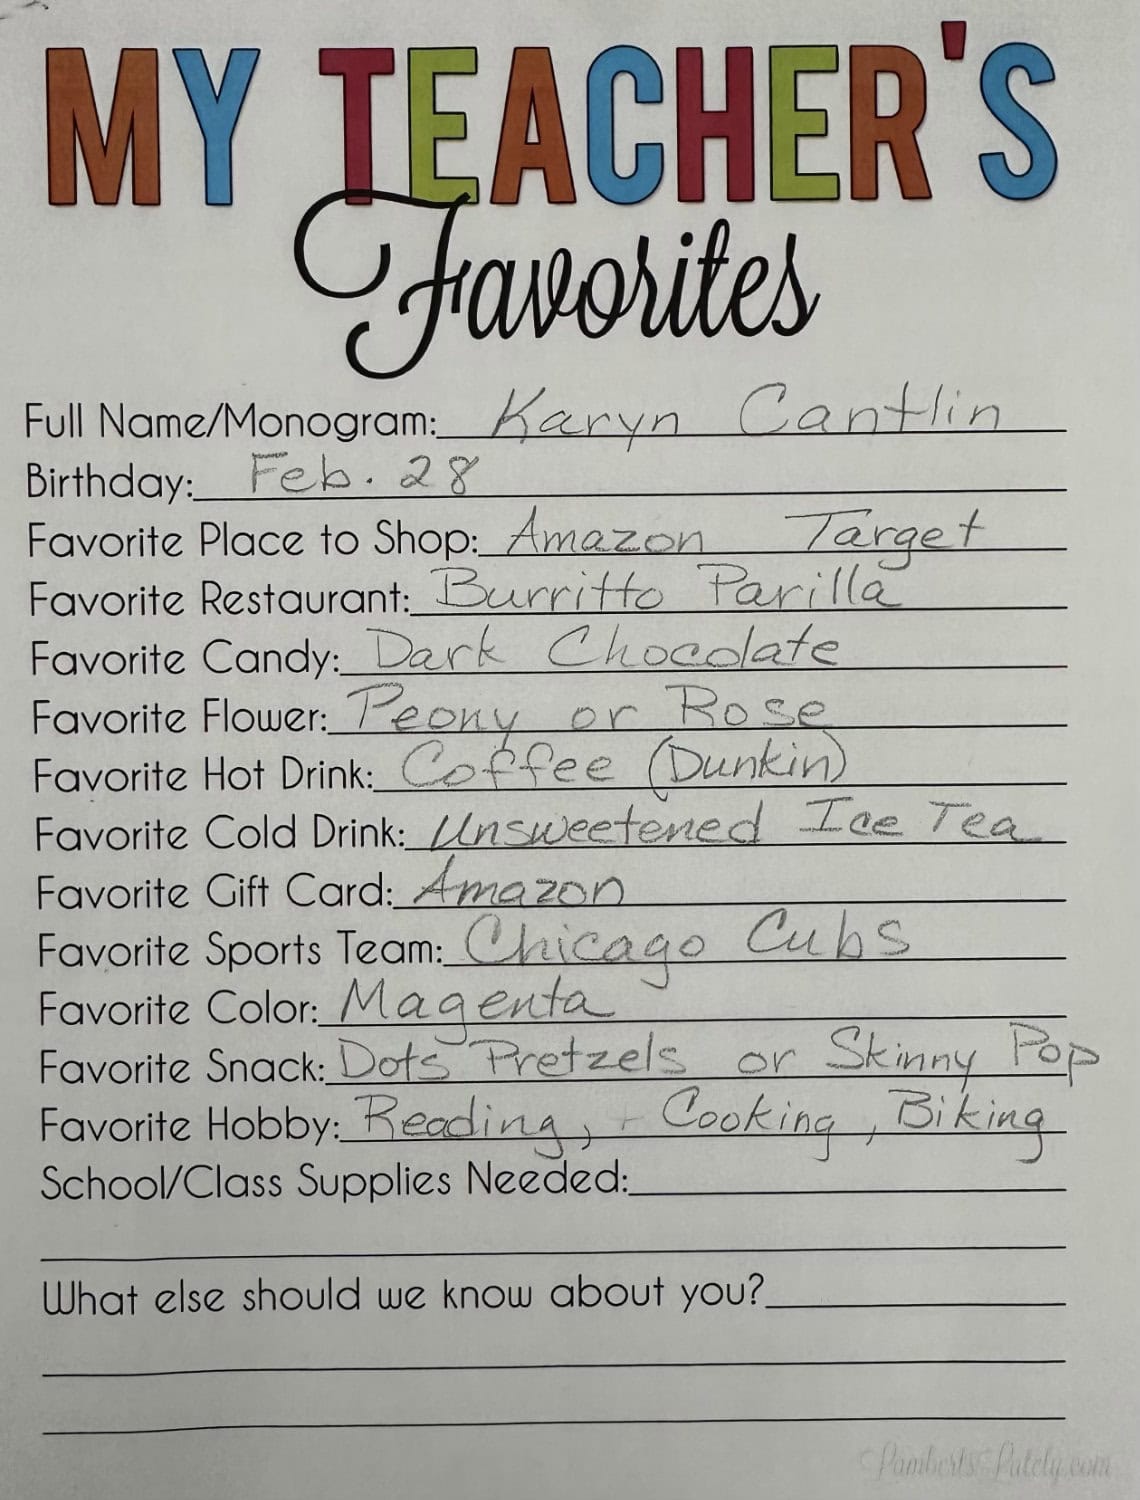 MY TEACHER'S
Favorites
Full Name/Monogram: Karyn Cantlin
Birthday: Feb. 28
Favorite Place to Shop: Amazon Target
Favorite Restaurant: Burritto Parilla
Favorite Candy: Dark Chocolate
Favorite Flower: Peony or Rose
Favorite Hot Drink: Coffee (Dunkin)
Favorite Cold Drink: Unsweetened Ice Tea
Favorite Gift Card: Amazon
Favorite Sports Team: Chicago Cubs
Favorite Color: Magenta
Favorite Snack: Dots Pretzels or Skinny Pop
Favorite Hobby: Reading, Cooking, Biking
School/Class Supplies Needed:
What else should we know about you?
Lamberts Lately.com